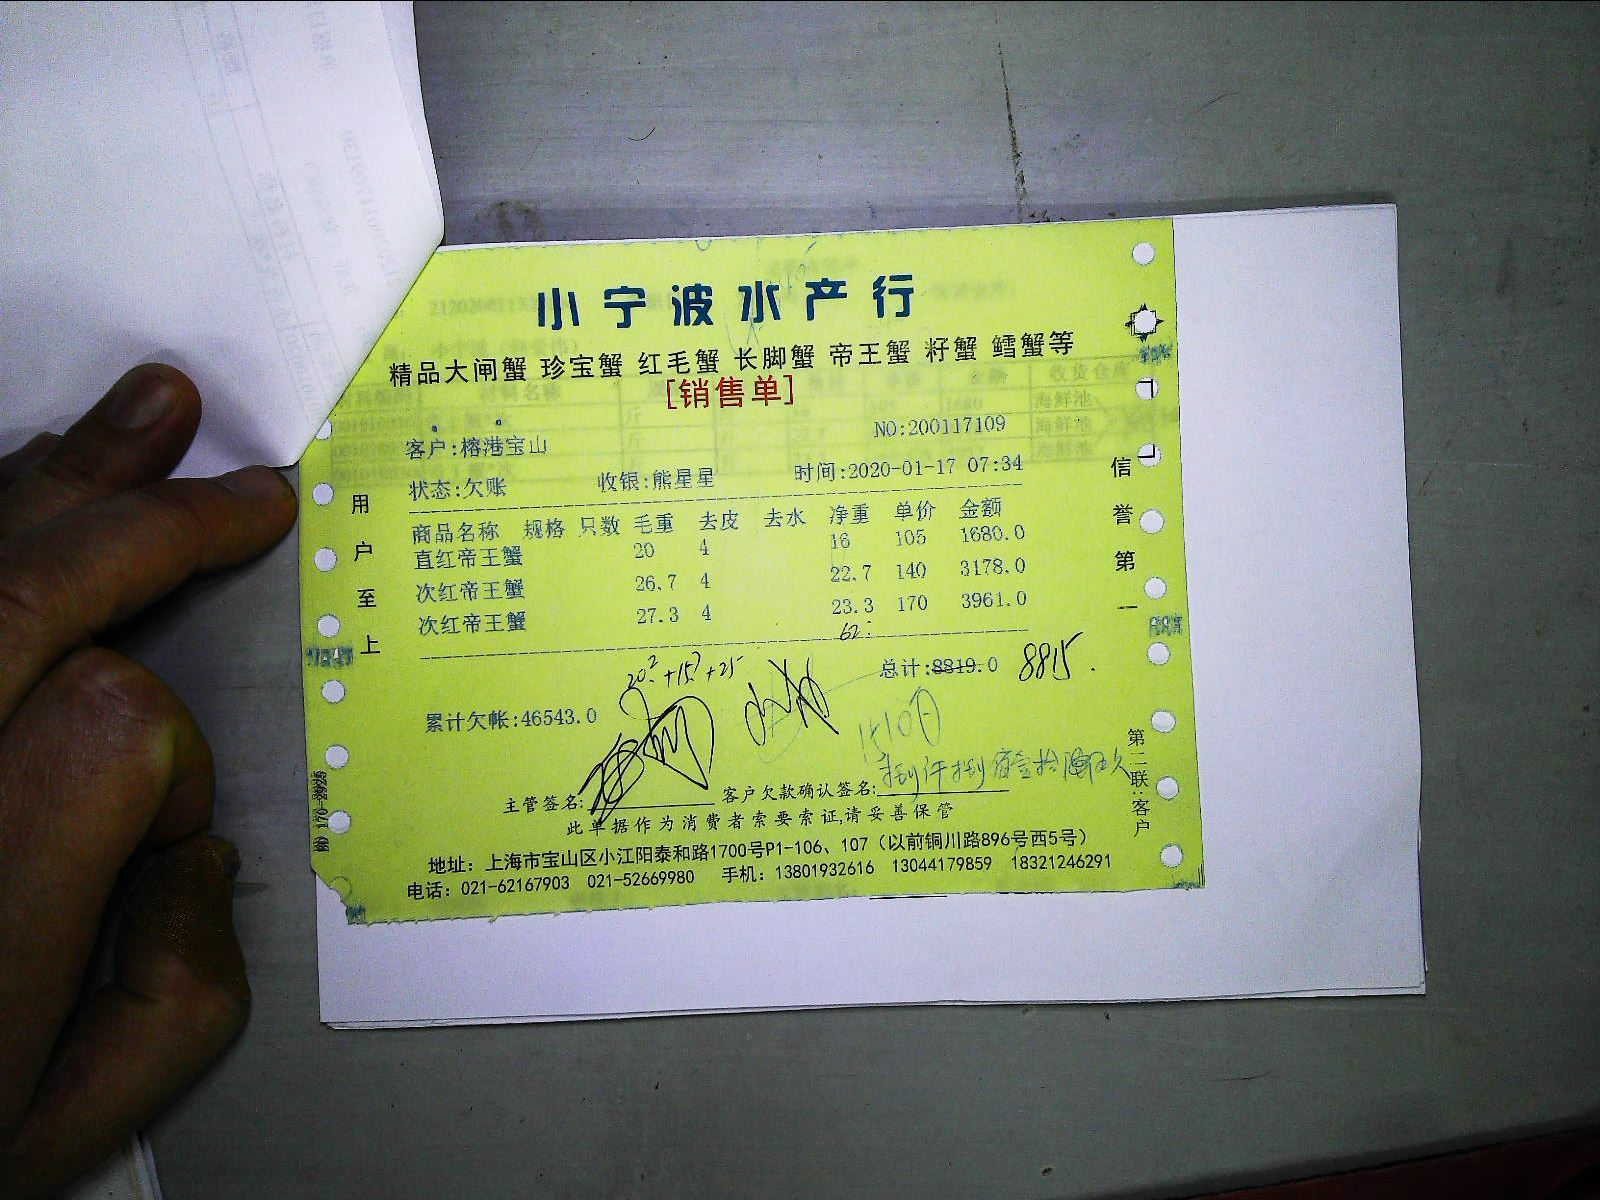 小宁波水产行
精品大闸蟹 珍宝蟹 红毛蟹 长脚蟹 帝王蟹 籽蟹 鳕蟹等
[销售单]
客户:榕港宝山 NO:200117109
状态:欠账 收银:熊星星 时间:2020-01-17 07:34
商品名称 规格 只数 毛重 去皮 去水 净重 单价 金额
直红帝王蟹 20 4 16 105 1680.0
次红帝王蟹 26.7 4 22.7 140 3178.0
次红帝王蟹 27.3 4 23.3 170 3961.0
62.
总计:8819.0 8815.
20.2+15.7+25
累计欠帐:46543.0
主管签名: 客户欠款确认签名:
此单据作为消费者索要索证,请妥善保管
地址: 上海市宝山区小江阳泰和路1700号P1-106、107 (以前铜川路896号西5号)
电话: 021-62167903 021-52669980 手机: 13801932616 13044179859 18321246291
用户至上
信誉第一
第二联:客户